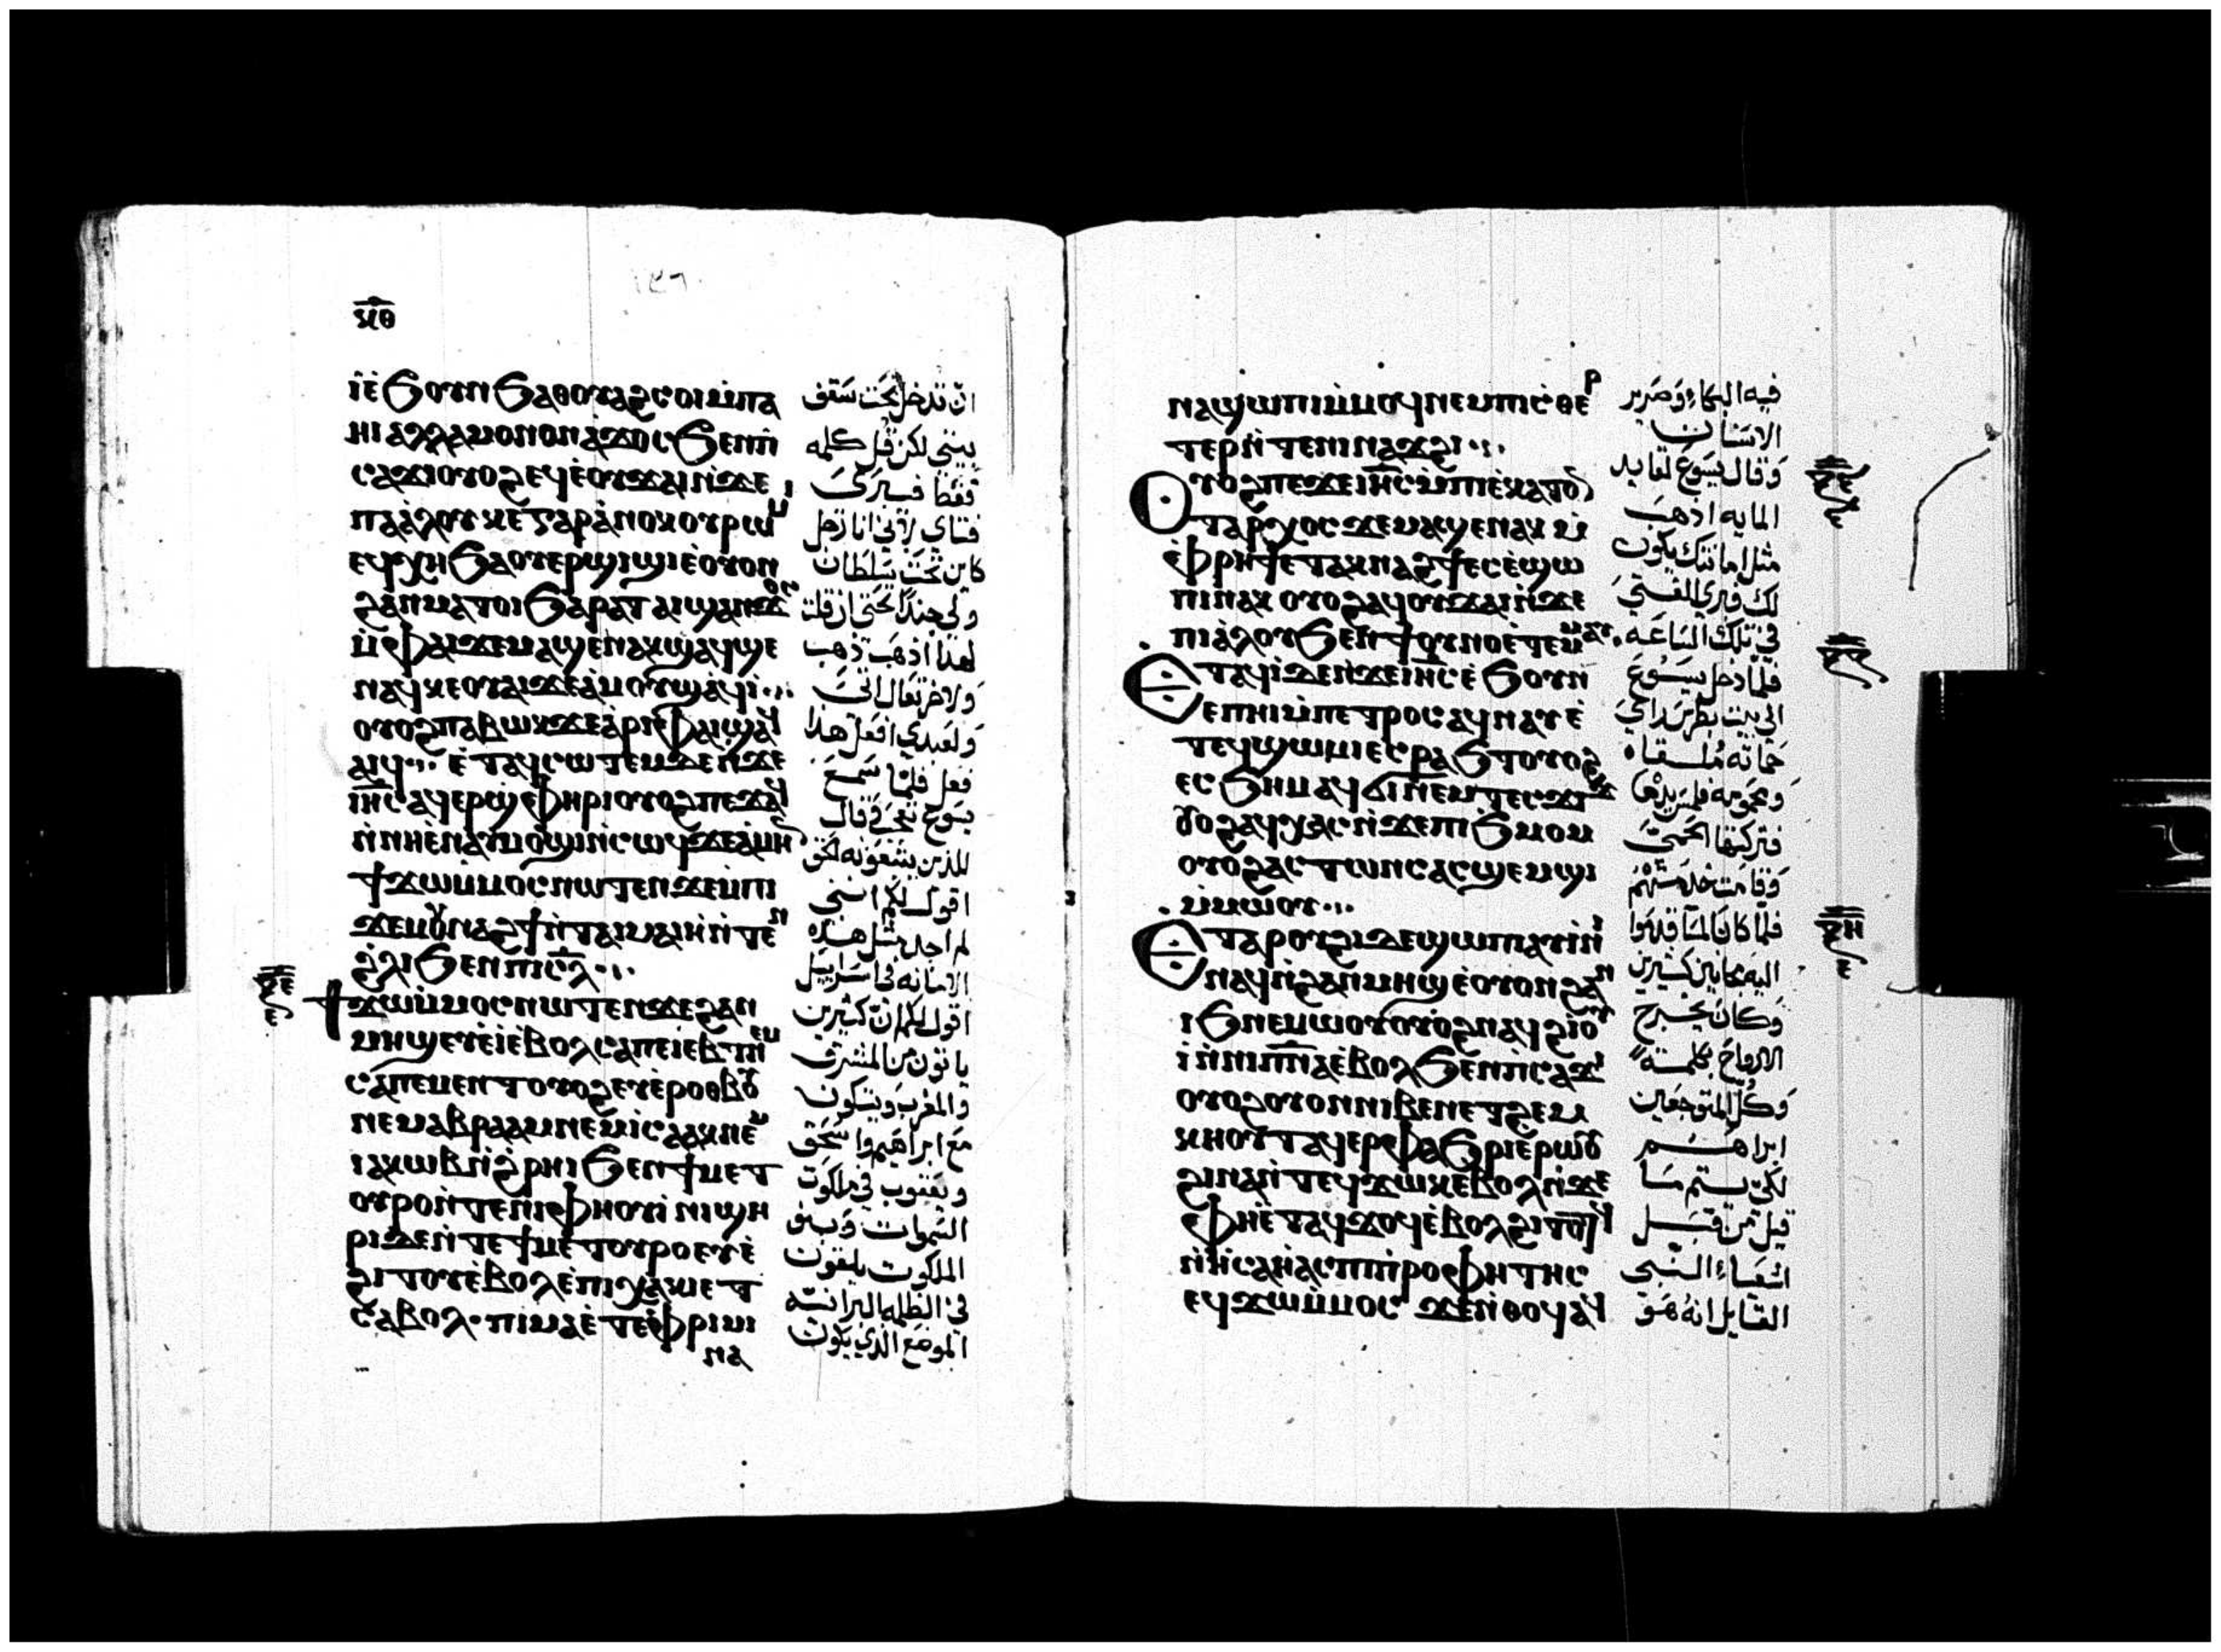 ١٤٦
ⲕ︦ⲑ︦
ⲓ̀ⲉ̀ϧⲟⲩⲛ ϧⲁⲑⲟⲩⲁϩⲥⲟⲓ ⲙ̀ⲡⲁ
ⲏⲓ ⲁⲗⲗⲁ ⲙⲟⲛⲟⲛ ⲁ̀ϫⲟⲥ ϧⲉⲛⲡⲓ
ⲥⲁϫⲓ ⲟⲩⲟϩ ⲉϥⲉ̀ⲟⲩϫⲁⲓ ⲛ̀ϫⲉ
ⲡⲁⲁ̀ⲗⲟⲩ ⲕⲉ ⲅⲁⲣ ⲁ̀ⲛⲟⲕ ⲟⲩⲣⲱⲙ
ⲉϥⲭⲏ ϧⲁⲟⲩⲉⲣϣⲓϣⲓ ⲉ̀ⲟⲩⲟⲛ
ϩⲁⲛⲙⲁⲧⲟⲓ ϧⲁⲣⲁⲧ ⲁⲓϣⲁⲛϫⲟⲥ
ⲙ̀ⲫⲁⲓ ϫⲉ ⲙⲁϣⲉⲛⲁⲕ ϣⲁϥϣⲉ
ⲛⲁϥ ⲕⲉⲟⲩⲁⲓ ϫⲉ ⲁ̀ⲙⲟⲩ ϣⲁϥⲓ̀
ⲟⲩⲟϩ ⲡⲁⲃⲱⲕ ϫⲉ ⲁ̀ⲣⲓⲫⲁⲓ ϣⲁϥ
ⲁⲓϥ ⲉ̀ⲧⲁϥⲥⲱⲧⲉⲙ ⲇⲉ ⲛ̀ϫⲉ
ⲓⲏ̅ⲥ̅ ⲁϥⲉⲣϣ̀ⲫⲏⲣⲓ ⲟⲩⲟϩ ⲡⲉϫⲁϥ
ⲛ̀ⲛⲏⲉ̀ⲛⲁⲩⲙⲟϣⲓ ⲛ̀ⲥⲱϥ ϫⲉ ⲁ̀ⲙⲏⲛ
ϯϫⲱⲙ̀ⲙⲟⲥ ⲛⲱⲧⲉⲛ ϫⲉ ⲙ̀ⲡⲓ
ϫⲉⲙⲟⲩⲛⲁϩϯ ⲛ̀ⲧⲁⲓⲙⲁⲓⲏ ⲛ̀ⲧⲉⲛ
ϩ̀ⲗⲓ ϧⲉⲛⲡⲓⲥ̅ⲗ̅
ϯϫⲱⲙ̀ⲙⲟⲥ ⲛⲱⲧⲉⲛ ϫⲉ ϩⲁⲛ
ⲙⲏϣ ⲉⲩⲉ̀ⲓ̀ ⲉ̀ⲃⲟⲗ ⲥⲁⲡⲉⲓⲉⲃⲧ ⲛⲉⲙ
ⲥⲁⲡⲉⲙⲉⲛⲧ ⲟⲩⲟϩ ⲉⲩⲉ̀ⲣⲟⲑⲃⲟⲩ
ⲛⲉⲙ ⲁⲃⲣⲁⲁⲙ ⲛⲉⲙ ⲓ̀ⲥⲁⲁⲕ ⲛⲉⲙ
ⲓⲁⲕⲱⲃ ⲛ̀ϩ̀ⲣⲏⲓ ϧⲉⲛϯⲙⲉⲧ
ⲟⲩⲣⲟ ⲛ̀ⲧⲉⲛⲓⲫⲏⲟⲩⲓ̀ ⲛⲓϣⲏ
ⲣⲓ ⲇⲉ ⲛ̀ⲧⲉϯⲙⲉⲧⲟⲩⲣⲟ ⲉⲩⲉ̀
ϩⲓⲧⲟⲩ ⲉ̀ⲃⲟⲗ ⲉ̀ⲡⲓⲭⲁⲕⲓ ⲉⲧ
ⲥⲁⲃⲟⲗ ⲡⲓⲙⲁ ⲉ̀ⲧⲉⲫⲣⲓⲙⲓ
ⲛⲁ
ان تدخل تحت سقف
بيتي لكن قل كلمه
فقط فيبرى
فتاي لاني انا رجل
كاين تحت سلطان
ولي جندا تحتي ان قلت
لهذا اذهب ذهب
ولاخر تعال اتى
ولعبدي افعل هذا
فعل فلما سمع
يسوع تعجب وقال
للذين يتبعونه الحق
اقول لكم انني
لم اجد مثل هذه
الامانه في اسراييل
اقول لكم ان كثيرين
ياتون من المشرق
والمغرب ويتكون
مع ابراهيم واسحق
ويعقوب في ملكوت
السموات وبنو
الملكوت يلقون
في الظلمه البرانيه
الموضع الذي يكون
ⲛⲁϣⲱⲡⲓ ⲙ̀ⲙⲟϥ ⲛⲉⲙ ⲡⲓⲥⲑⲉⲣ
ⲧⲉⲣ ⲛ̀ⲧⲉⲛⲓⲛⲁϫϩⲓ
ⲟⲩⲟϩ ⲡⲉϫⲉ ⲓⲏ̅ⲥ̅ ⲙ̀ⲡⲓⲉ̀ⲕⲁⲧⲟⲛ
ⲧⲁⲣⲭⲟⲥ ϫⲉ ⲙⲁϣⲉⲛⲁⲕ ⲙ̀
ⲫⲣⲏϯ ⲉⲧⲁⲕⲛⲁϩϯ ⲉⲥⲉ̀ϣⲱ
ⲡⲓ ⲛⲁⲕ ⲟⲩⲟϩ ⲁϥⲟⲩϫⲁⲓ ⲛ̀ϫⲉ
ⲡⲓⲁ̀ⲗⲟⲩ ϧⲉⲛϯⲟⲩⲛⲟⲩ ⲉ̀ⲧⲉⲙⲙⲁⲩ
ⲉⲧⲁϥⲓ̀ ⲇⲉ ⲛ̀ϫⲉ ⲓⲏ̅ⲥ̅ ⲉ̀ϧⲟⲩⲛ
ⲉⲡⲏⲓ ⲙ̀ⲡⲉⲧⲣⲟⲥ ⲁϥⲛⲁⲩ ⲉ̀
ⲧⲉϥϣⲱⲙⲓ ⲉⲥⲣⲁϧⲧ ⲟⲩⲟϩ
ⲉⲥϧⲏⲙ ⲁϥϭⲓ ⲛⲉⲙ ⲧⲉⲥϫⲓϫ
ⲟⲩⲟϩ ⲁϥⲭⲁⲥ ⲛ̀ϫⲉ ⲡⲓϧⲙⲟⲙ
ⲟⲩⲟϩ ⲁⲥⲧⲱⲛⲥ ⲁⲥϣⲉⲙϣⲓ
ⲙ̀ⲙⲱⲟⲩ
ⲉⲧⲁⲣⲟⲩϩⲓ ⲇⲉ ϣⲱⲡⲓ ⲁⲩⲓ̀ⲛⲓ
ⲛⲁϥ ⲛ̀ϩⲁⲛⲙⲏϣ ⲉ̀ⲟⲩⲟⲛ ϩⲁⲛ
ⲓϧ ⲛⲉⲙⲱⲟⲩ ⲟⲩⲟϩ ⲛⲁϥϩⲓⲟⲩ
ⲓ̀ ⲛ̀ⲛⲓⲡⲛ̅ⲁ̅ ⲉ̀ⲃⲟⲗ ϧⲉⲛⲡⲥⲁϫⲓ
ⲟⲩⲟϩ ⲟⲩⲟⲛ ⲛⲓⲃⲉⲛ ⲉⲧϩⲉⲙ
ⲕⲏⲟⲩⲧ ⲁϥⲉⲣⲫⲁϧⲣⲓ ⲉ̀ⲣⲱⲟⲩ
ϩⲓⲛⲁ ⲛ̀ⲧⲉϥϫⲱⲕ ⲉ̀ⲃⲟⲗ ⲛ̀ϫⲉ
ⲫⲏⲉ̀ⲧⲁϥϫⲟϥ ⲉ̀ⲃⲟⲗ ϩⲓⲧⲟⲧϥ
ⲛ̀ⲏ̀ⲥⲁⲏ̀ⲁⲥ ⲡⲓⲡ̀ⲣⲟⲫⲏⲧⲏⲥ
ⲉϥϫⲱⲙ̀ⲙⲟⲥ ϫⲉ ⲛ̀ⲑⲟϥ ⲁϥ
فيه البكاء وصرير
الاسنان
وقال يسوع لقايد
المايه اذهب
مثل امانتك يكون
لك فبرى الفتى
في تلك الساعه
فلما دخل يسوع
الى بيت بطرس راى
حماته ملقاه
ومحمومه فلمس يدها
فتركتها الحمى
وقامت خدمتهم
فلما كان المسا قدموا
اليه مجانين كثيرين
وكان يخرج
الارواح بكلمته
وكل المتوجعين
ابراهم
لكي يتم ما
قيل من قبل
اشعياء النبي
القايل انه هو